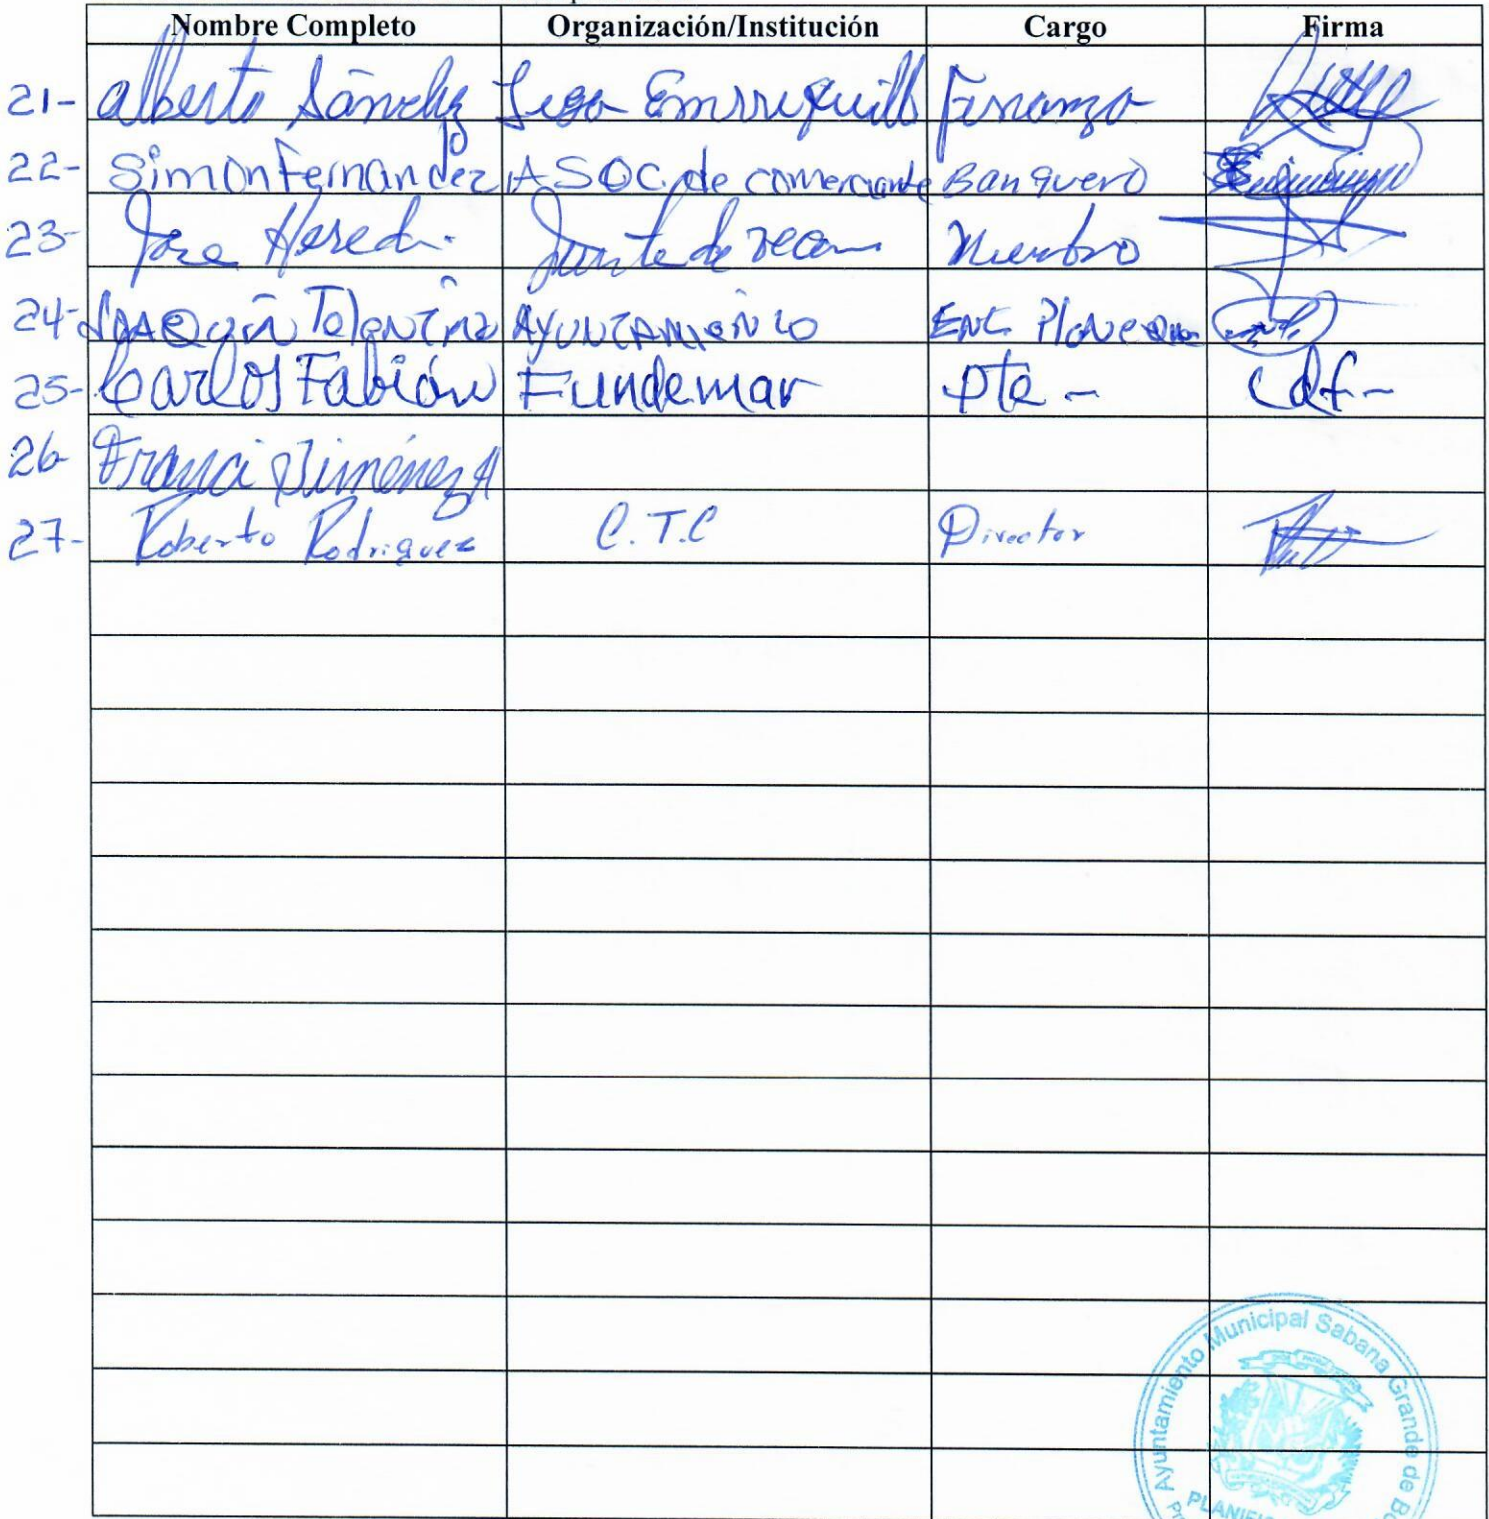 Nombre Completo Organización/Institución Cargo Firma
21- Alberto Sánchez Liga Enrriquillo Finanza
22- Simon Fernandez ASOC. de comerciante Banquero
23- Jose Heredi Junta de veci Miembro
24- Joaquín Tolentino Ayuntamiento Enc. Planeacion
25- Carlos Fabián Fundemar Pte - Cdf-
26- Franci Jiménez A
27- Roberto Rodriguez C.T.C Director
Ayuntamiento Municipal Sabana Grande de Bo
PLANIFI